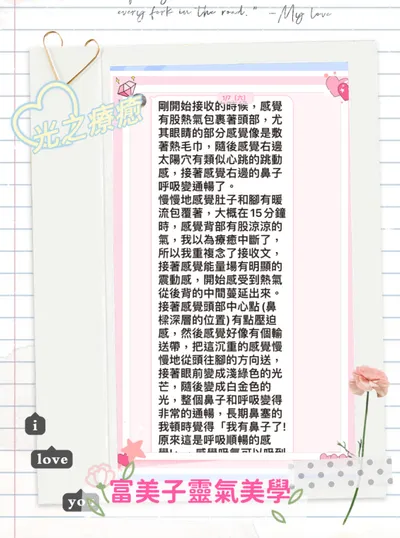 every fork in the road." -My love
光之療癒
剛開始接收的時候，感覺
有股熱氣包裹著頭部，尤
其眼睛的部分感覺像是敷
著熱毛巾，隨後感覺右邊
太陽穴有類似心跳的跳動
感，接著感覺右邊的鼻子
呼吸變通暢了。
慢慢地感覺肚子和腳有暖
流包覆著，大概在15分鐘
時，感覺背部有股涼涼的
氣，我以為療癒中斷了，
所以我重複念了接收文，
接著感覺能量場有明顯的
震動感，開始感受到熱氣
從後背的中間蔓延出來。
接著感覺頭部中心點(鼻
樑深層的位置)有點壓迫
感，然後感覺好像有個輸
送帶，把這沉重的感覺慢
慢地從頭往腳的方向送，
接著眼前變成淺綠色的光
芒，隨後變成白金色的
光，整個鼻子和呼吸變得
非常的通暢，長期鼻塞的
我頓時覺得「我有鼻子了!
原來這是呼吸順暢的感
i
love
yo
富美子靈氣美學